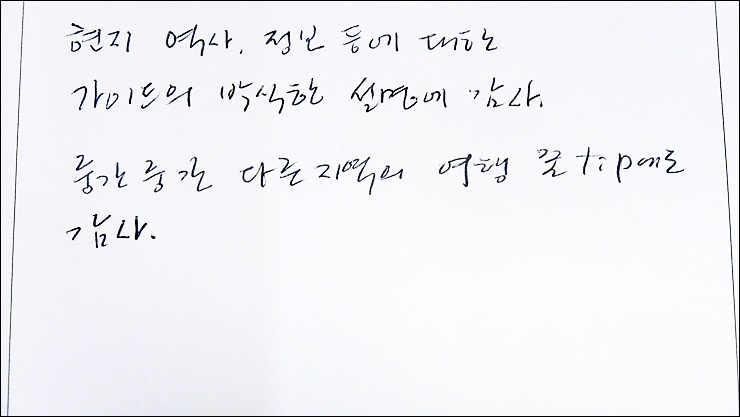 현지 역사, 정보 등에 대한
가이드의 박식한 설명에 감사.
중간중간 다른지역의 여행 꿀tip에도
감사.